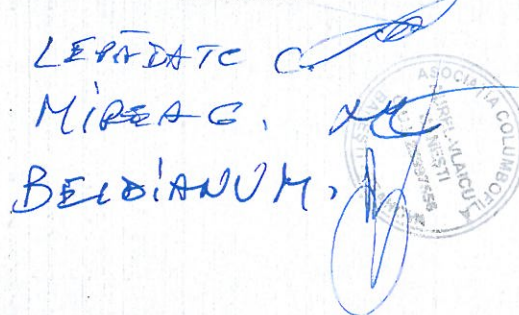 LEPĂDATE C.
MIREA G.
BELDIANU M.
ASOCIAȚIA COLUMBOFIL
AUREL VLAICU